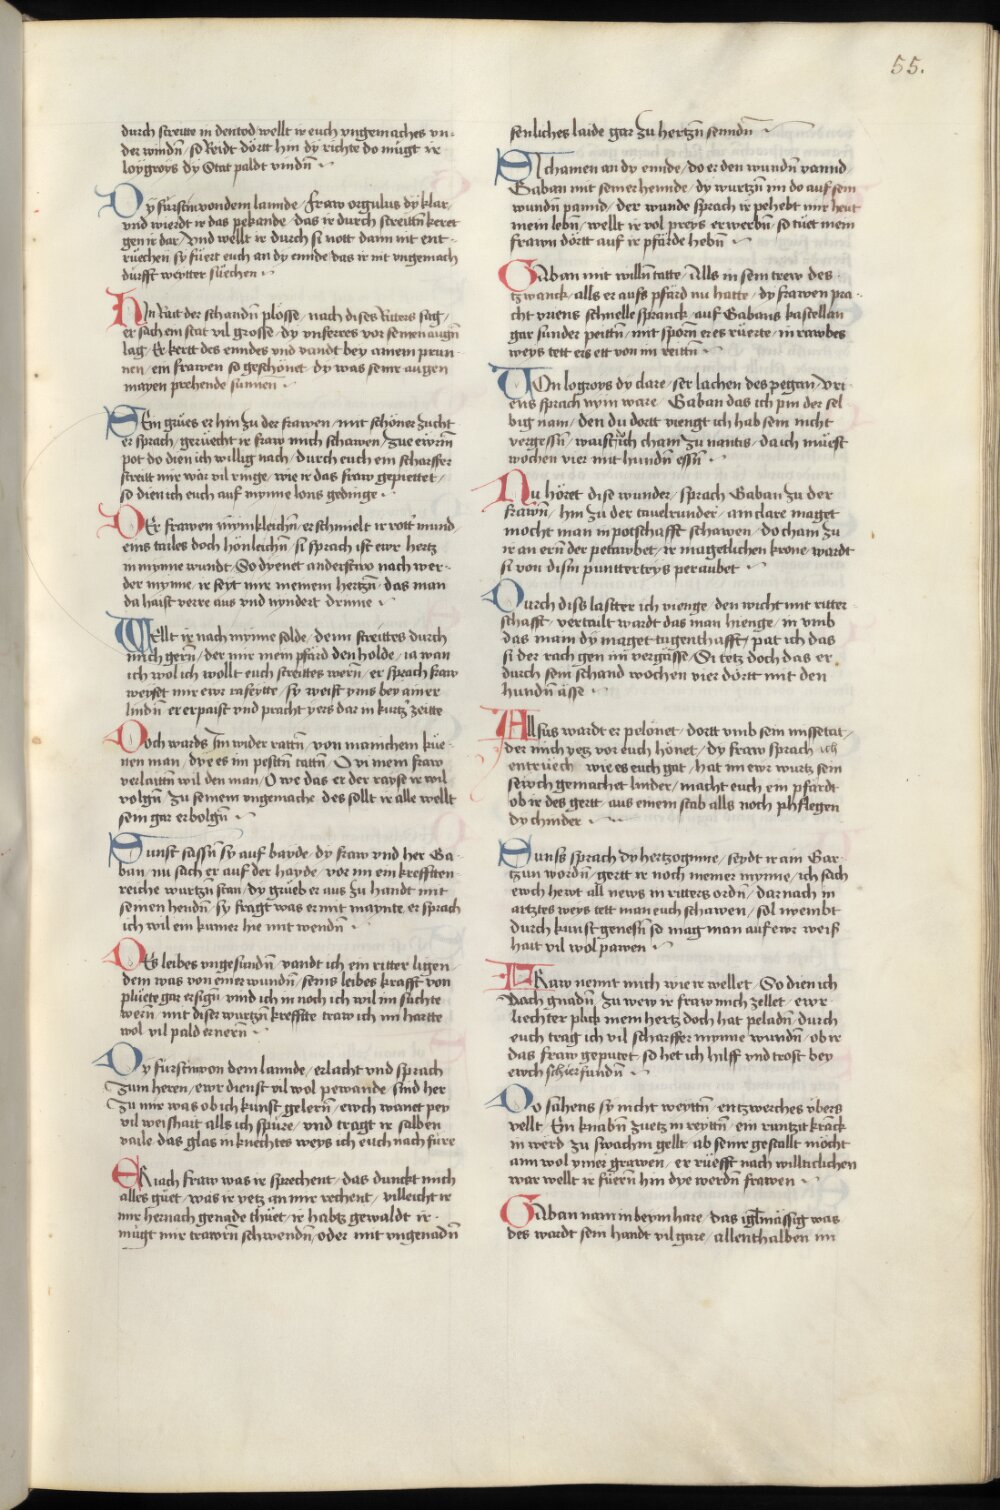 55.
durch streitte in den tod wellt ir euch vngemaches vn-
der windn̄ / so Reidt dörtt hin dy richte do mügt ir
loygroys dy Stat paldt vindn̄
Dy fürstin von dem lannde / fraw orgulus dy klar
vnd wierdt ir das pekande / das ir durch streittn̄ keret
gen ir dar / Vnd wellt ir durch si nott dann nit ent-
rüechen sy füert euch an dy ennde das ir nit vngemach
dürfft weytter süechen
Hin Rait der schandn̄ plösse / nach dises Ritters sag /
er sach ein stat vil grosse / dy vnferres vor seinen augn̄
lag / Er kertt des enndes vnd vandt bey ainem prun-
nen / ein frawen so geschönet / dy was seinr augen
mayen prehende sunnen
Sein grües er hin zu der frawen / mit schöner zucht
er sprach / gerüecht ir fraw mich schawen / zue ewrm
pot do dien ich willig nach / durch euch ein scharffer
streitt mir wär vil ringe / wie ir das fraw gepiettet /
so dien ich euch auf mynne lons gedinge
Der frawen mymkleichn̄ / er schmielt ir rott mund /
eins tailes doch hönleichn̄ / si sprach ist ewr hertz
in mynne wundt / So dyenet anderstwo nach wer-
der mynne / ir seyt mir meinem hertzn̄ / das man
da haist verre aus vnd nyndert drinne
Wellt ir nach mynne solde / denn streittes durch
mich gern̄ / der mir mein pfard den holde / ia wan
ich wol ich wollt euch streittes wern̄ / er sprach fraw
weyset mir ewr rafeytte / sy weist yms bey ainer
lindn̄ er erpaist vnd pracht yers dar in kurtz zeitte
Doch wards Im wider rattn̄ / von manichem küe-
nen man / dye es im pestn̄ tattn̄ / O vi mein fraw
verlaittn̄ wil den man / O we das er der rayse ir wil
volgn̄ zu seinem vngemache des sollt ir alle wellt
sein gar erbolgn̄
Sunst sassn̄ sy auf bayde / dy fraw vnd her Ga-
ban / nu sach er auf der hayde / vor im ein krefften-
reiche wurtzn̄ stan / dy grüeb er aus zu handt mit
seinen hendn̄ / sy fragt was er mit maynte er sprach
ich wil ein kumer hie mit wendn̄
Des leibes vngesundn̄ / vandt ich ein ritter ligen /
dem was von einer wundn̄ / seins leibes krafft von
plüete gar ersign̄ / vind ich in noch ich wil im süchte
wern̄ / mit diser wurtzn̄ kreffte traw ich im hartte
wol vil pald ernern̄
Dy fürstin von dem lannde / erlacht vnd sprach
zum heren / ewr dienst vil wol pewande / sind her
zu mir was ob ich kunst gelern̄ / ewch wanet pey
vil weishait alls ich spüre / vnd tragt ir salben
vaile das glas in knechtes weys ich euch nach füre
Er iach fraw was ir sprechent / das dunckt mich
alles güet / was ir yetz an mir rechent / villeicht ir
mir hernach genade thüet / ir habtz gewaldt ir
mügt mir trawrn̄ schwendn̄ / oder mit vngenadn̄
senliches laide gar zu hertzn̄ senndn̄
Si chamen an dy ennde / do er den wundn̄ vannd /
Gaban mit seiner hennde / dy wurtzn̄ im do auf sein
wundn̄ pannd / der wunde sprach ir pehebt mir heut
mein lebn̄ / wellt ir vol preys erwerbn̄ / so tüet mein
frawn dörtt auf ir pfärde hebn̄
Gaban mit willn̄ tatte / Alls in sein trew des
tzwanck / alls er aufs pfärd nu hatte / dy frawen pra-
cht vriens schnelle spranck / auf Gabans kastellan
gar sunder peittn̄ / mit sporn̄ er es rüerte / in rawbes
weys tett ers ett von im reittn̄
Von logroys dy clare / ser lachen des pegan / Vri-
ens sprach nym ware / Gaban das ich pin der sel
big nam / den du dortt viengt ich hab sein nicht
vergessn̄ / waistu ich cham zu nantis / da ich müest
wochen vier mit hundn̄ essn̄
Nu höret dise wunder / sprach Gaban zu der
frawn̄ / hin zu der tauelrunder / ain clare maget
mocht man in potschafft schawen / do cham zu
ir an ern̄ der petawbet / ir magetlichen krone / wardt
si von disin̄ punttertoys peraubet
Durch diss lastter ich vienge / den wicht mit ritter-
schafft / vertailt wardt das man hienge / in vmb
das main dy maget tugenthafft / pat ich das
si der rach gen im vergässe / Si tetz doch das er
durch sein schand wochen vier dörtt mit den
hundn̄ ässe
Allsus wardt er pelönet / dortt vmb sein missetat /
der mich yetz vor euch hönet / dy fraw sprach ich
entrüech wie es euch gat / hat im ewr wurtz sein
serwch gemachet linder / macht euch ein pfärdt
ob ir des gertt aus einem stab alls noch phflegen
dy chinder
Sunss sprach dy hertzoginne / seydt ir ain Gar-
tzun wordn̄ / gertt ir noch meiner mynne / ich sach
ewch hewt all news in ritters ordn̄ / dar nach in
artztes weys tett man euch schawen / sol yembt
durch kunst genesn̄ so mag man auf ewr weis
hait vil wol pawen
Fraw nennt mich wie ir wellet / So dien ich
Doch gnadn̄ / zu wew ir fraw mich zellet / ewr
liechter plick mein hertz doch hat peladn̄ / durch
euch trag ich vil scharffer mynne wundn̄ / ob ir
das fraw geputet so het ich hilff vnd trost bey
ewch schier fundn̄
Do sahens sy nicht weyttn̄ / entzwerches übers
vellt / Ein knabn̄ zuetz in reyttn̄ / ein runtzit kranck
in werd zu swachm gellt / ab seinr gestallt möcht
ann wol yiner grawen / er rüefft nach willticlichen
war wellt ir füern̄ hin dye werdn̄ frawen
Gaban nam in beym hare / das iglmässig was
des wardt sein handt vil gare / allenthalben im